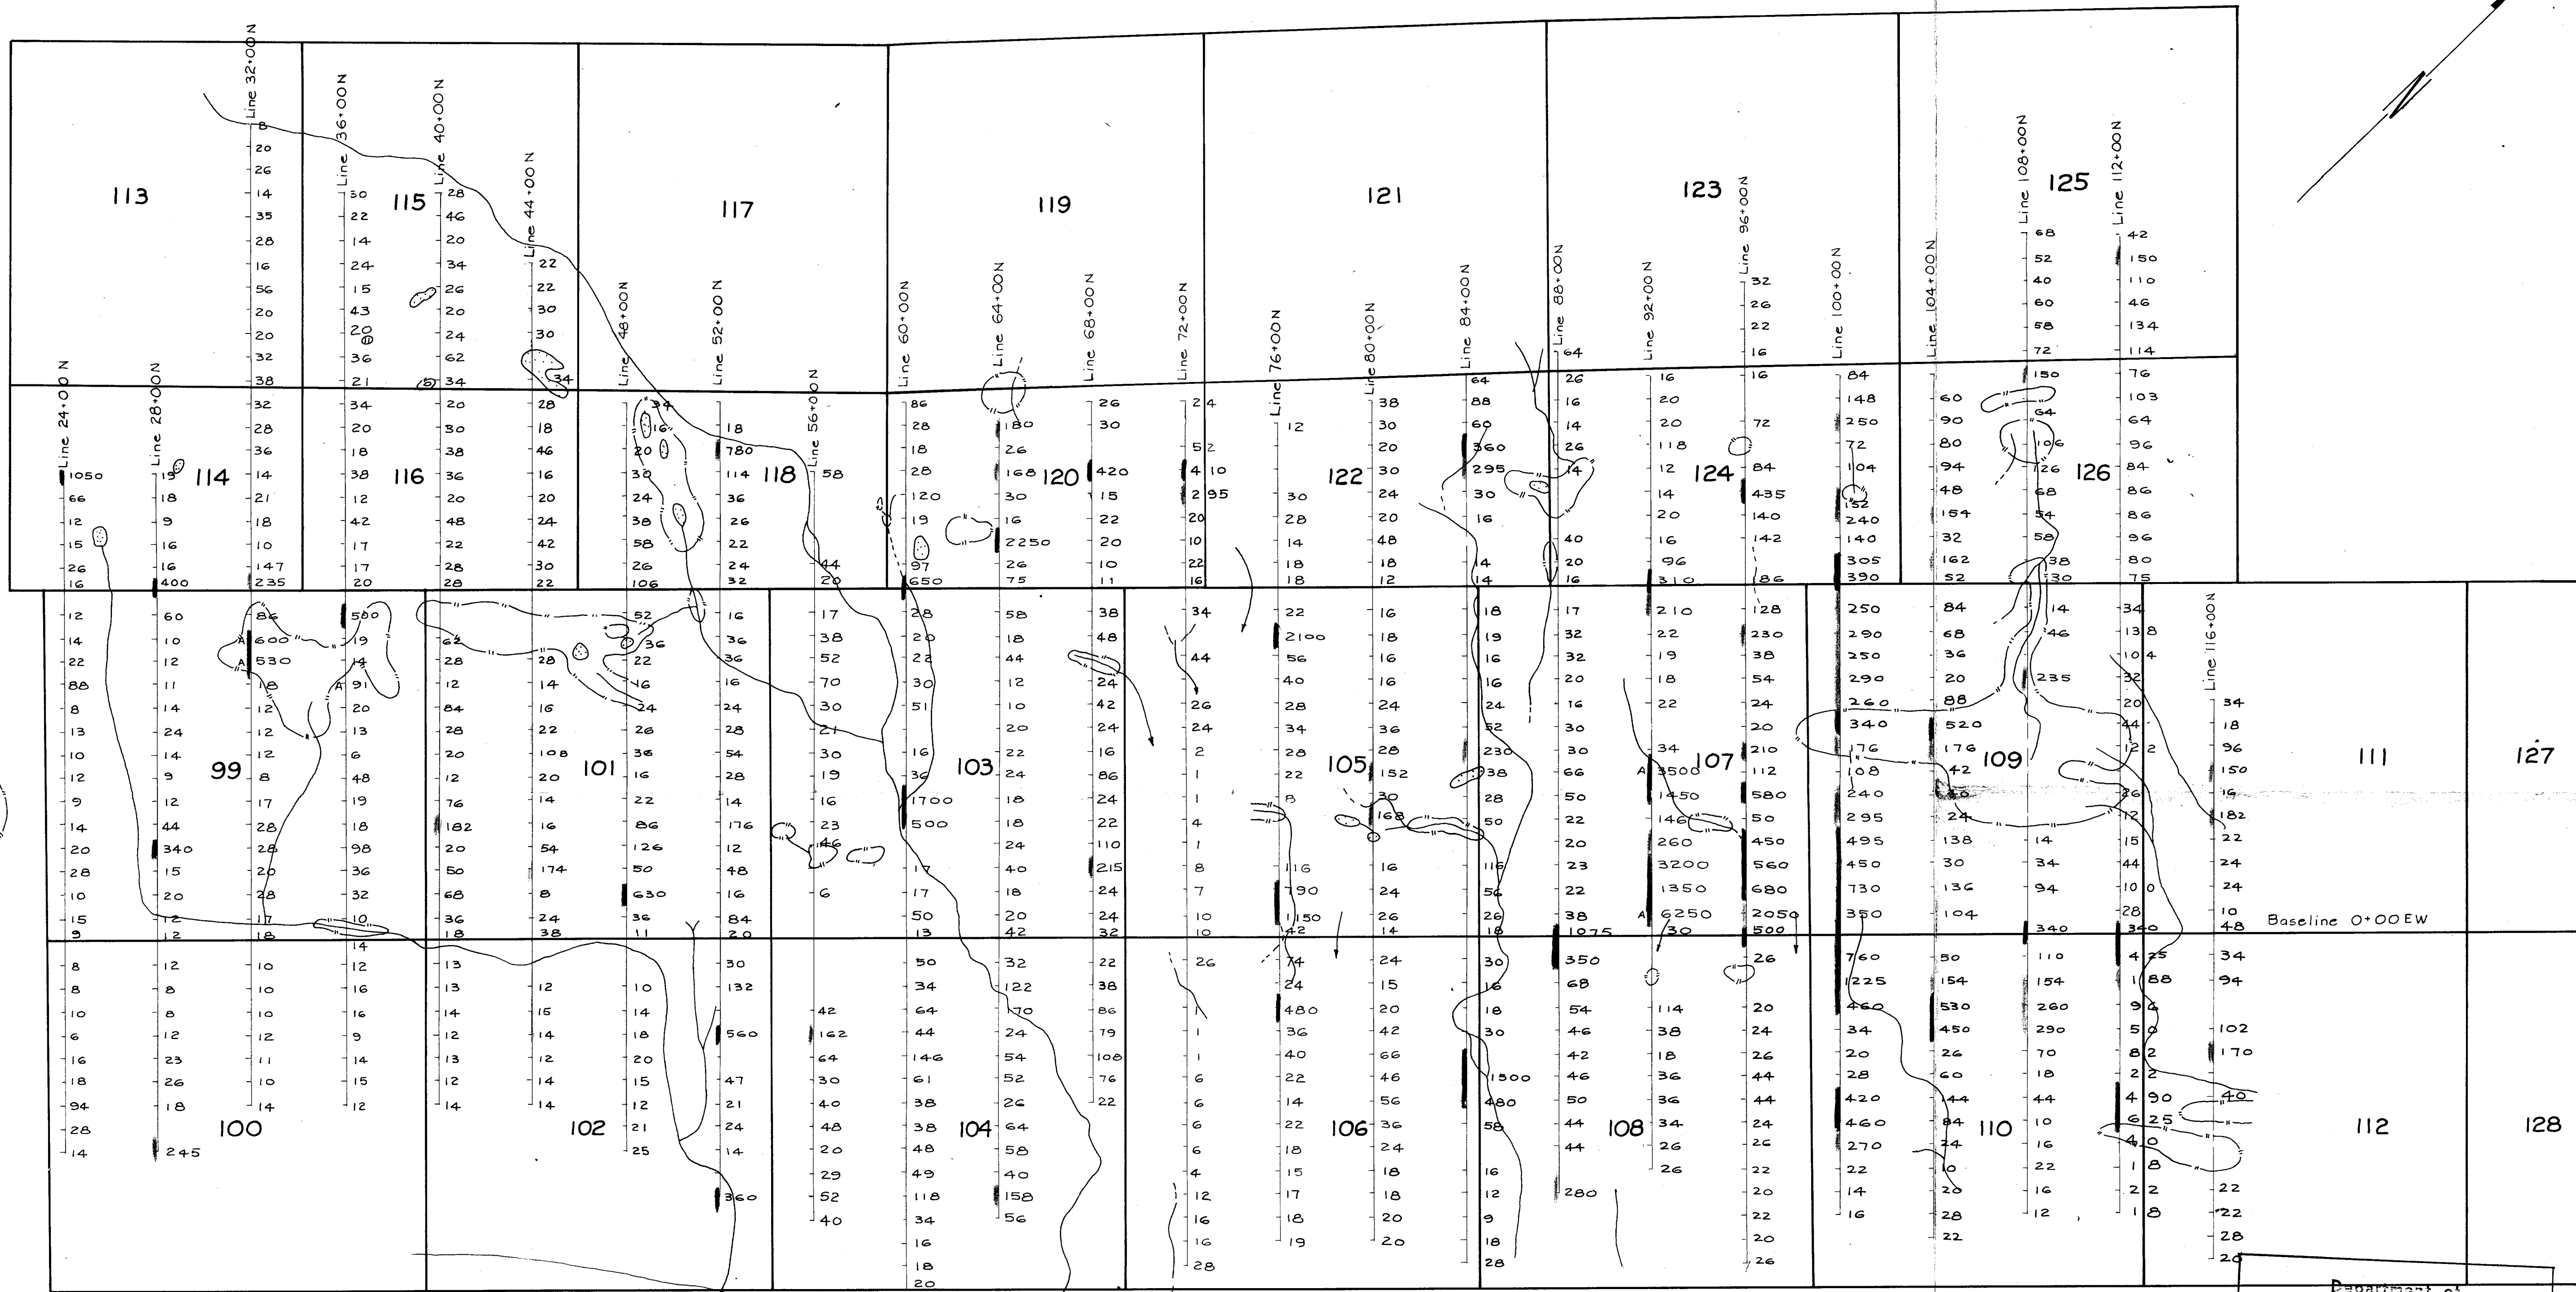 Line 24+00N
1050 66 12 15 26 16 12 14 22 88 8 13 10 12 9 14 20 28 10 15 9 8 8 10 6 16 18 94 28 14
Line 28+00N
19 18 9 16 16 400 60 10 12 11 14 24 14 9 12 44 340 15 20 12 12 12 8 8 12 23 26 18 245
Line 32+00N
8 20 26 14 35 28 16 56 20 20 32 38 32 28 36 14 21 18 10 147 235 86 A 600 A 530 18 12 12 12 8 17 28 28 20 28 17 18 10 10 10 12 11 10 14
Line 36+00N
30 22 14 24 15 43 20 36 21 34 20 18 38 12 42 17 17 20 500 19 14 A 91 20 13 6 48 19 18 98 36 32 10 14 12 16 16 9 14 15 12
Line 40+00N
28 46 20 34 26 20 24 62 34 20 30 38 36 20 48 22 28 28 62 28 12 84 28 20 12 76 182 20 50 68 36 18 13 13 14 12 13 12 14
Line 44+00N
22 22 30 30 34 28 18 46 16 20 24 42 30 22 28 14 16 22 108 20 14 16 54 174 8 24 38 12 15 14 12 14 14
Line 48+00N
34 16 20 30 24 38 58 26 106 52 36 22 16 24 26 36 16 22 86 126 50 630 36 11 10 14 18 20 15 12 21 25
Line 52+00N
18 780 114 36 26 22 24 32 16 36 36 16 24 28 54 28 14 176 12 48 16 84 20 30 132 560 47 21 24 14 360
Line 56+00N
58 44 20 17 38 52 70 30 21 30 19 16 23 146 6 42 162 64 30 40 48 20 29 52 40
Line 60+00N
86 28 18 28 120 19 97 650 28 20 22 30 51 16 36 1700 500 17 17 50 13 50 34 64 44 146 61 38 38 48 49 118 34 16 18 20
Line 64+00N
180 26 168 30 16 2250 26 75 58 18 44 12 10 20 22 24 18 18 24 40 18 20 42 32 122 170 24 54 52 26 64 58 40 158 56
Line 68+00N
26 30 420 15 22 20 10 11 38 48 24 42 24 16 86 24 22 110 215 24 24 32 22 38 86 79 108 76 22
Line 72+00N
24 52 410 295 20 10 22 16 34 44 26 24 2 1 1 4 1 8 7 10 10 26 1 1 1 6 6 6 6 4 12 16 16 28
Line 76+00N
12 30 28 14 18 18 22 2100 56 40 28 34 28 22 8 116 790 1150 42 74 24 480 36 40 22 14 22 18 15 17 18 19
Line 80+00N
38 30 20 30 24 20 48 18 12 16 18 16 16 24 36 28 152 30 168 16 24 26 14 24 15 20 42 66 46 56 36 24 18 18 20 20
Line 84+00N
64 88 60 360 295 30 16 14 14 18 19 16 16 24 52 230 38 28 50 116 56 26 18 30 16 18 30 1500 480 58 16 12 9 18 28
Line 88+00N
64 26 16 14 26 14 40 20 16 17 32 32 20 16 30 30 66 50 22 20 23 22 38 1075 350 68 54 46 42 46 50 44 44 280
Line 92+00N
16 20 20 118 12 14 20 16 96 310 210 22 19 18 22 34 A 3500 1450 146 260 3200 1350 A 6250 30 114 38 18 36 36 34 26 26
Line 96+00N
32 26 22 16 16 72 84 435 140 142 186 128 230 38 54 24 20 210 112 580 50 450 560 680 2050 500 26 20 24 26 44 44 24 26 22 20 22 20 26
Line 100+00N
84 148 250 72 104 152 240 140 305 390 250 290 250 290 260 340 176 108 240 295 495 450 730 350 760 1225 460 34 20 28 420 460 270 22 14 16
Line 104+00N
60 90 80 94 48 154 32 162 52 84 68 36 20 88 520 176 42 24 138 30 136 104 50 154 530 450 26 60 44 84 24 10 20 28 22
Line 108+00N
68 52 40 60 58 72 150 64 106 126 68 54 58 38 30 14 46 235 14 34 94 340 110 154 260 290 70 18 44 10 16 22 16 12
Line 112+00N
42 150 110 46 134 114 76 103 64 96 84 86 86 96 80 75 34 138 104 32 20 44 122 26 12 15 44 100 28 340 425 188 96 50 82 22 490 625 40 18 22 18
Line 116+00N
34 18 96 150 16 182 22 24 24 10 48 34 94 102 170 40 22 22 28 20
113 115 117 119 121 123 125
114 116 118 120 122 124 126
99 101 103 105 107 109 111 127
Baseline 0+00EW
100 102 104 106 108 110 112 128
N
Department of